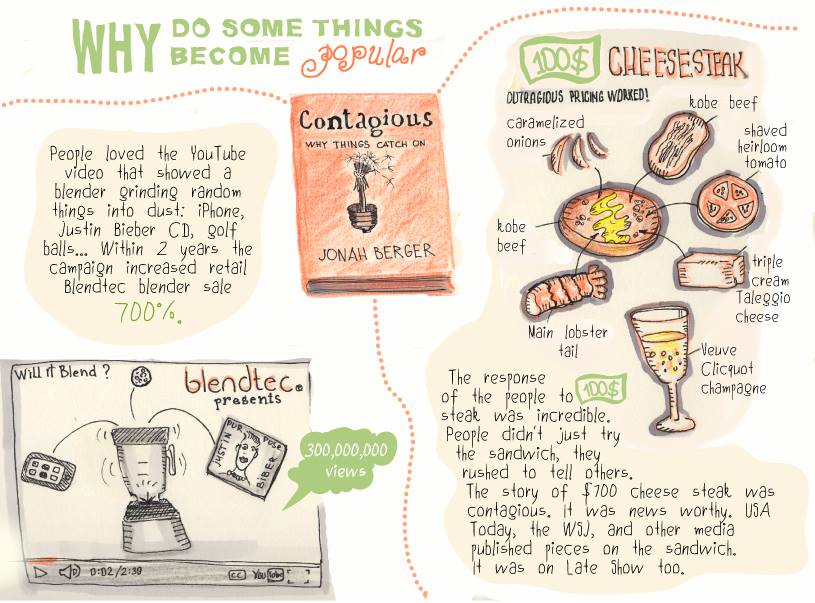 WHY DO SOME THINGS
BECOME popular
People loved the YouTube
video that showed a
blender grinding random
things into dust: iPhone,
Justin Bieber CD, golf
balls... Within 2 years the
campaign increased retail
Blendtec blender sale
700%.
Contagious
WHY THINGS CATCH ON
JONAH BERGER
Will it Blend ?
blendtec.
presents
JUSTIN
PURPOSE
BIBER
300,000,000
views
0:02/2:39
CC YouTube
100$ CHEESESTEAK
OUTRAGIOUS PRICING WORKED!
caramelized
onions
kobe beef
shaved
heirloom
tomato
kobe
beef
triple
cream
Taleggio
cheese
Main lobster
tail
Veuve
Clicquot
champagne
The response
of the people to 100$
steak was incredible.
People didn't just try
the sandwich, they
rushed to tell others.
The story of $100 cheese steak was
contagious. It was news worthy. USA
Today, the WSJ, and other media
published pieces on the sandwich.
It was on Late Show too.